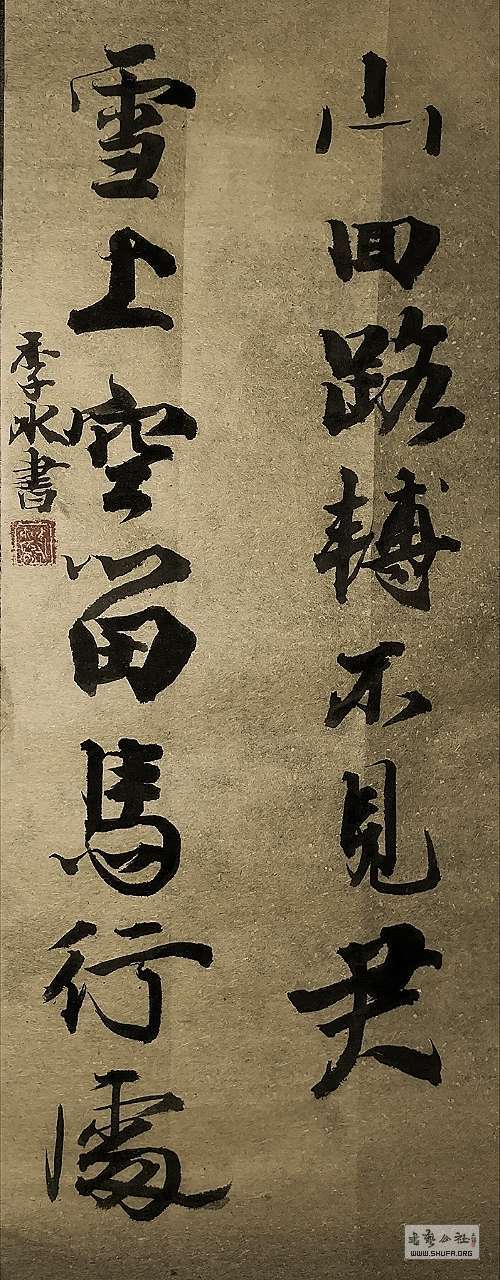 山回路轉不見君
雪上空留馬行處
季水書
书艺公社
WWW.SHUFA.ORG